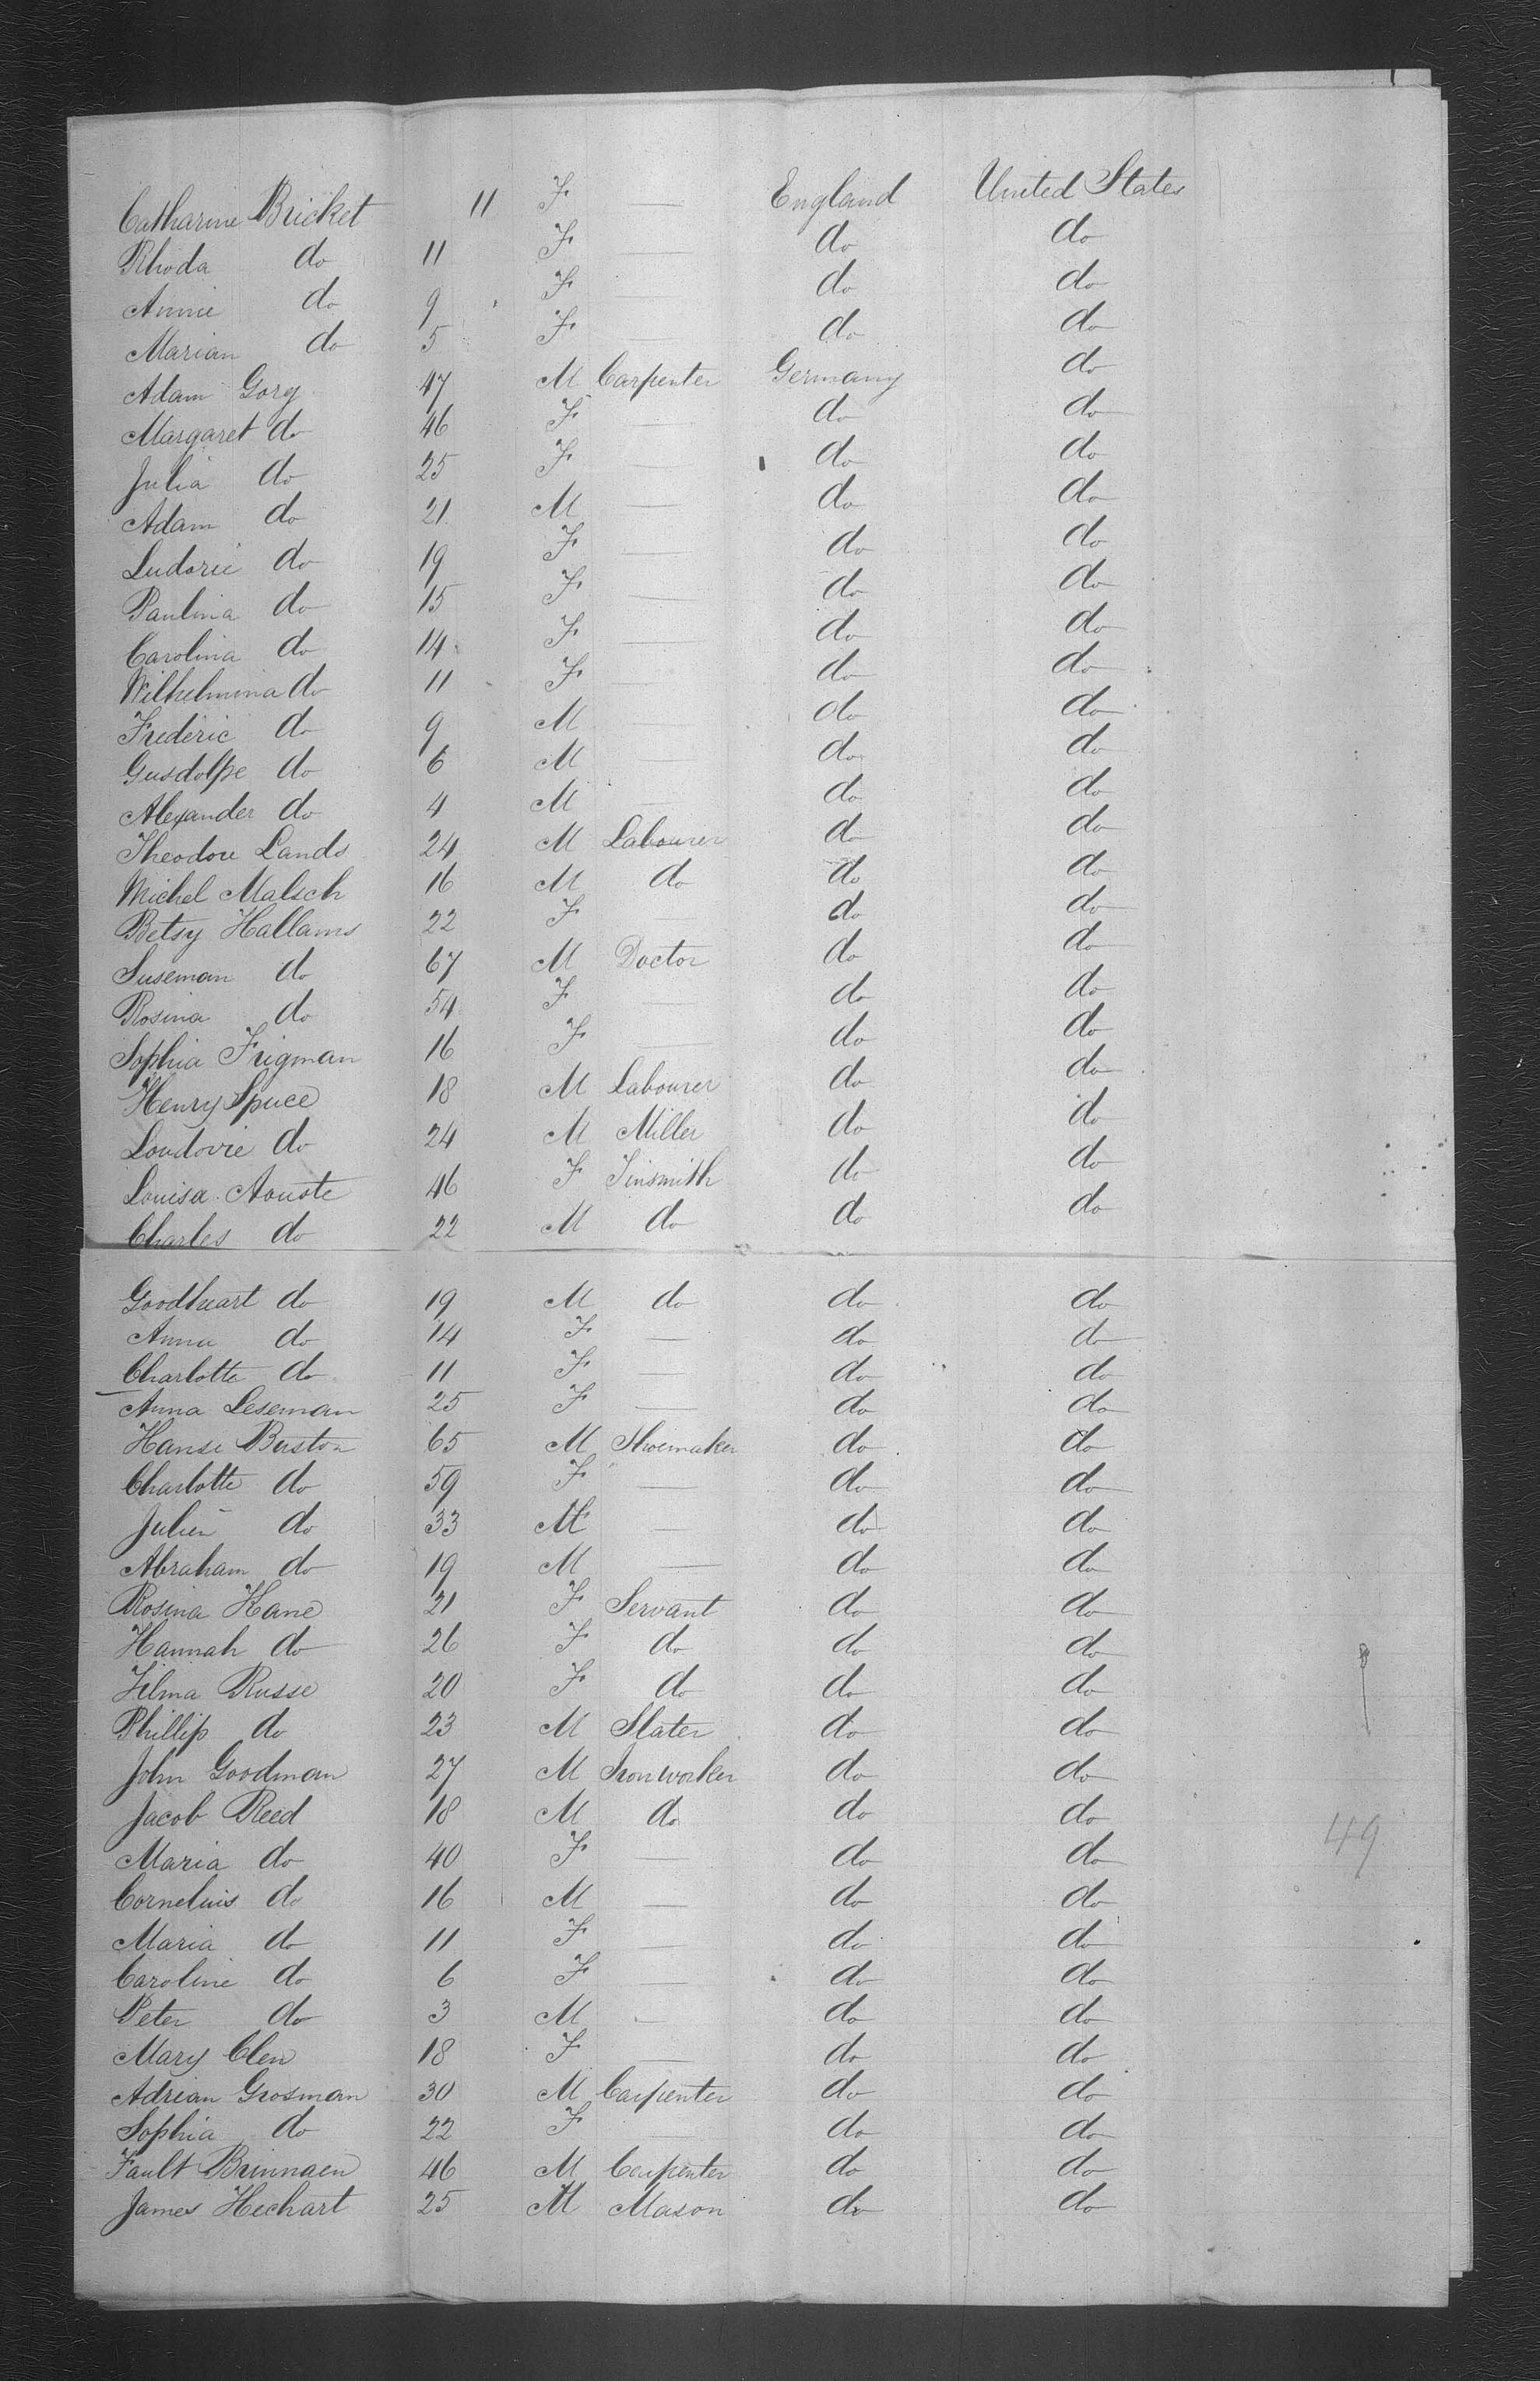 Catharine Bricket 11 F — England United States
Rhoda do 11 F — do do
Annie do 9 F — do do
Marian do 5 F — do do
Adam Gorg 47 M Carpenter Germany do
Margaret do 46 F — do do
Julia do 25 F — do do
Adam do 21 M — do do
Ludovic do 19 F — do do
Paulina do 15 F — do do
Carolina do 14 F — do do
Wilhelmina do 11 F — do do
Frederic do 9 M — do do
Gusdolpe do 6 M — do do
Alexander do 4 M — do do
Theodore Lands 24 M Labourer do do
Michel Malsch 16 M do do do
Betsy Hallams 22 F do do
Suseman do 67 M Doctor do do
Rosina do 54 F — do do
Sophia Frigman 16 F — do do
Henry Spuce 18 M Labourer do do
Loudovic do 24 M Miller do do
Louisa Aouste 46 F Tinsmith do do
Charles do 22 M do do do
Goodheart do 19 M do do do
Anna do 14 F — do do
Charlotte do 11 F — do do
Anna Leseman 25 F — do do
Hansi Buston 65 M Shoemaker do do
Charlotte do 59 F — do do
Julien do 33 M — do do
Abraham do 19 M — do do
Rosina Kane 21 F Servant do do
Hannah do 26 F do do do
Russe 20 F do do do
Phillip do 23 M Slater do do
John Goodman 27 M Ironworker do do
Jacob Reed 18 M do do do
49
Maria do 40 F — do do
Cornelius do 16 M — do do
Maria do 11 F — do do
Caroline do 6 F — do do
Peter do 3 M — do do
Mary Clen 18 F — do do
Adrian Grosman 30 M Carpenter do do
Sophia do 22 F — do do
Fault Brinnaen 46 M Carpenter do do
James Hechart 25 M Mason do do